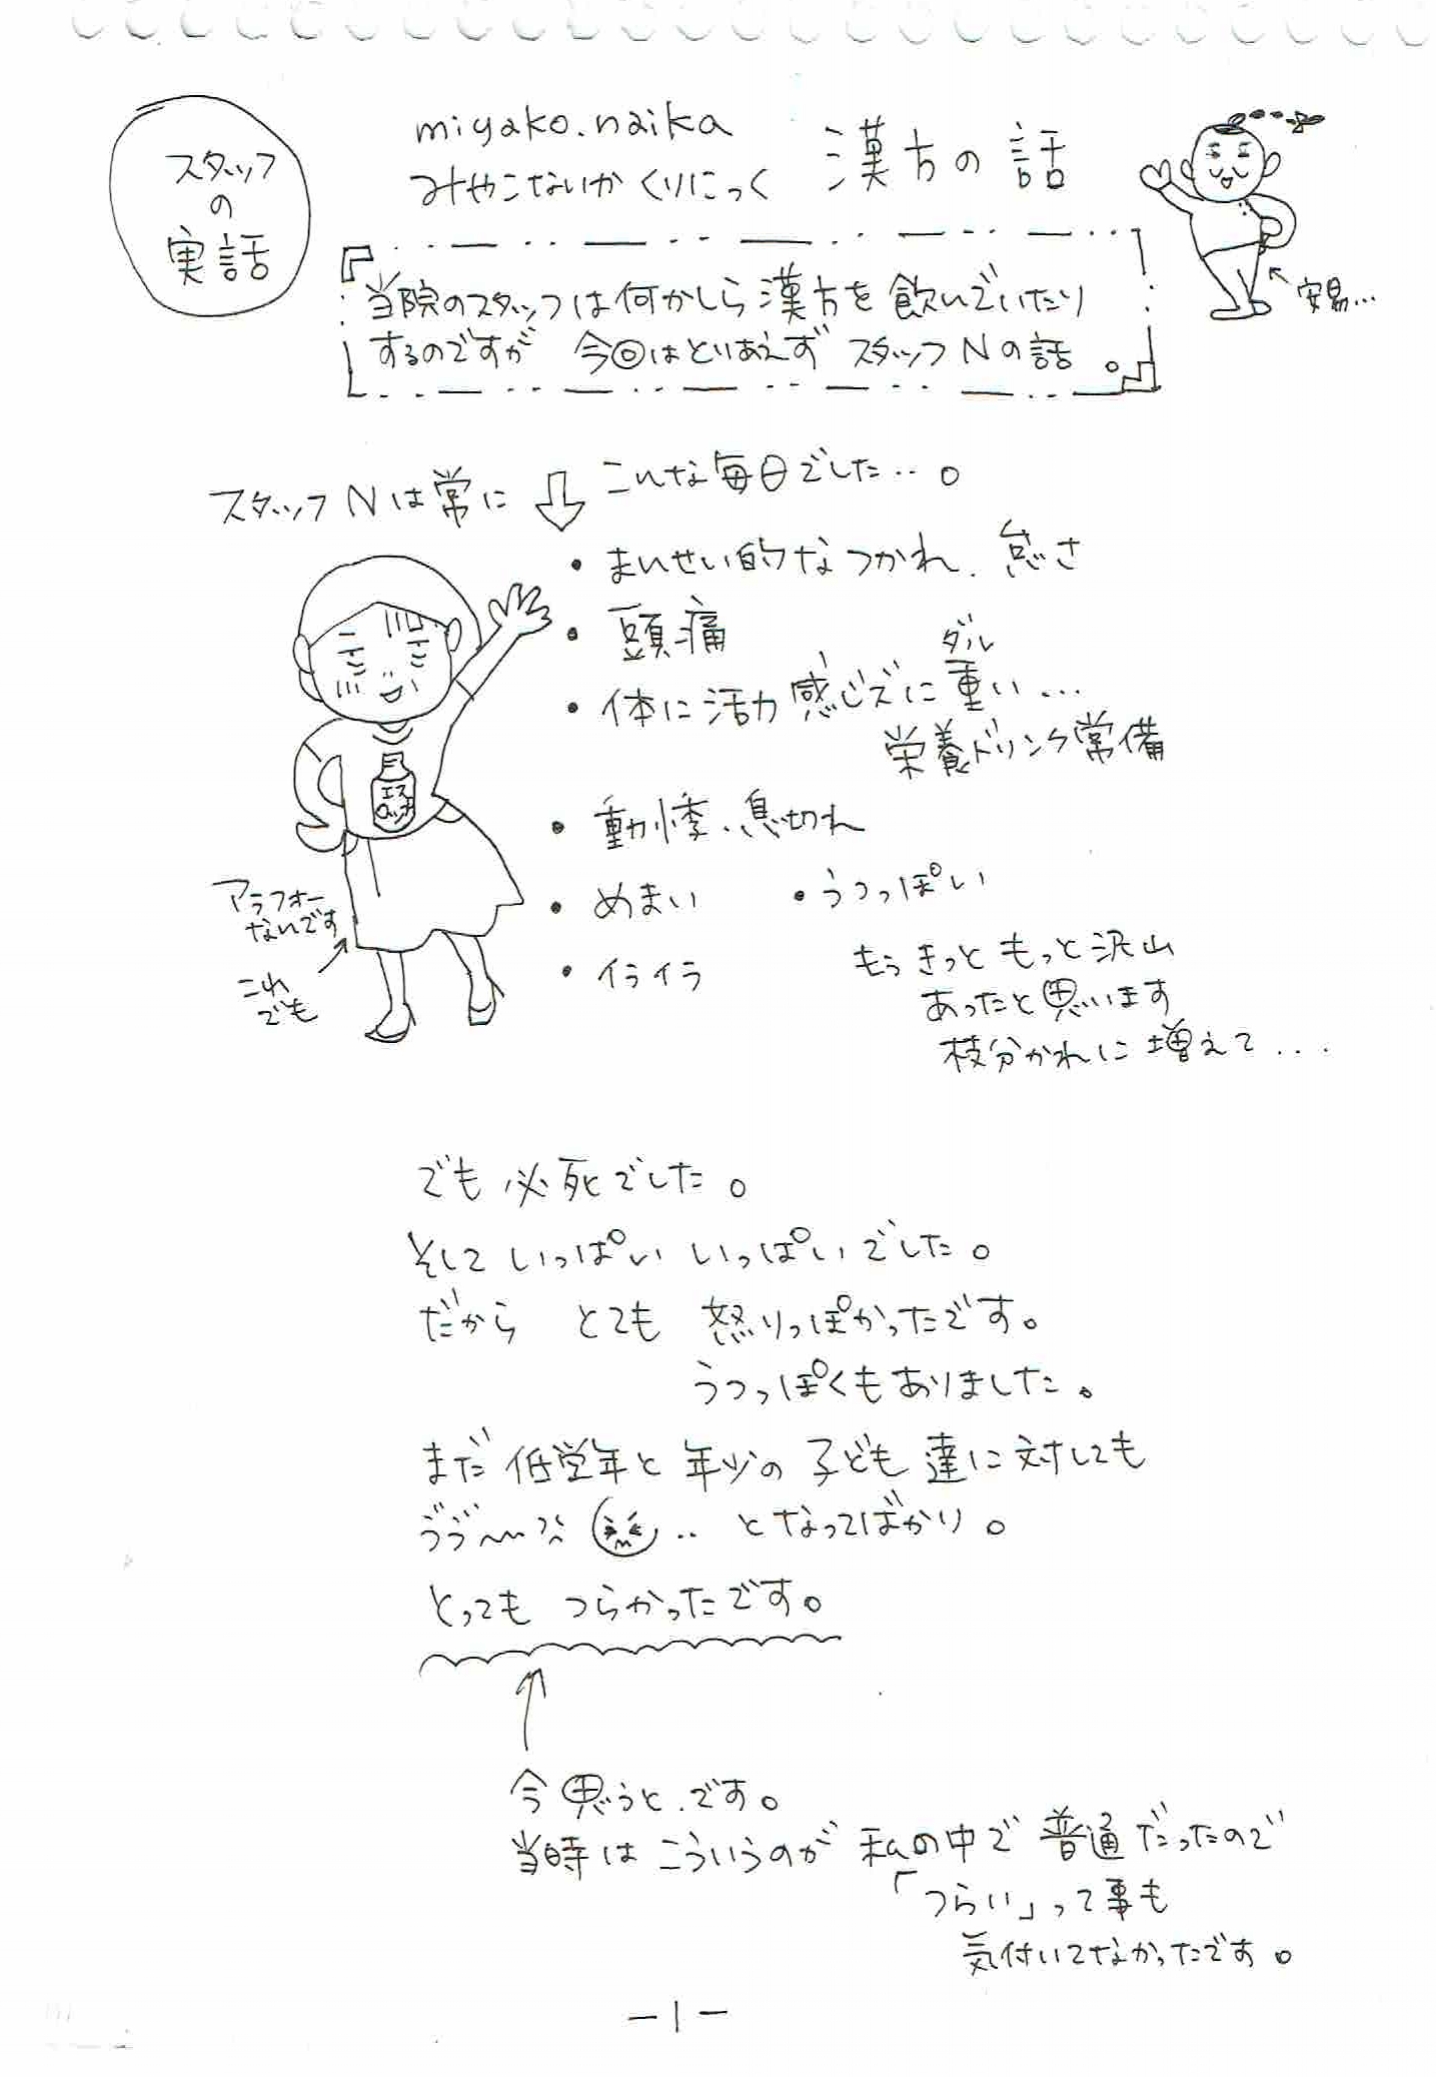 スタッフ
の
実話
miyako.naika
みやこないか くりにっく 漢方の話
『当院のスタッフは何かしら漢方を飲んでいたり
するのですが 今回はとりあえず スタッフNの話。』
安易…
スタッフNは常に ⇩ こんな毎日でした…。
・まんせい的なつかれ、怠さ
・頭痛
・体に活力感じズに重い…
ダル
栄養ドリンク常備
・動悸、息切れ
・めまい ・うつっぽい
・イライラ
エス
ロッカ
アラフォー
なんです
これ
でも
もうきっともっと沢山
あったと思います
枝分かれに増えて...
でも必死でした。
そしていっぱいいっぱいでした。
だから とても 怒りっぽかったです。
うつっぽくもありました。
まだ低学年と年少の子ども達に対しても
ゔゔ〜 .. となってばかり。
とってもつらかったです。
今思うと、です。
当時はこういうのが私の中で普通だったので
「つらい」って事も
気付いてなかったです。
-1-